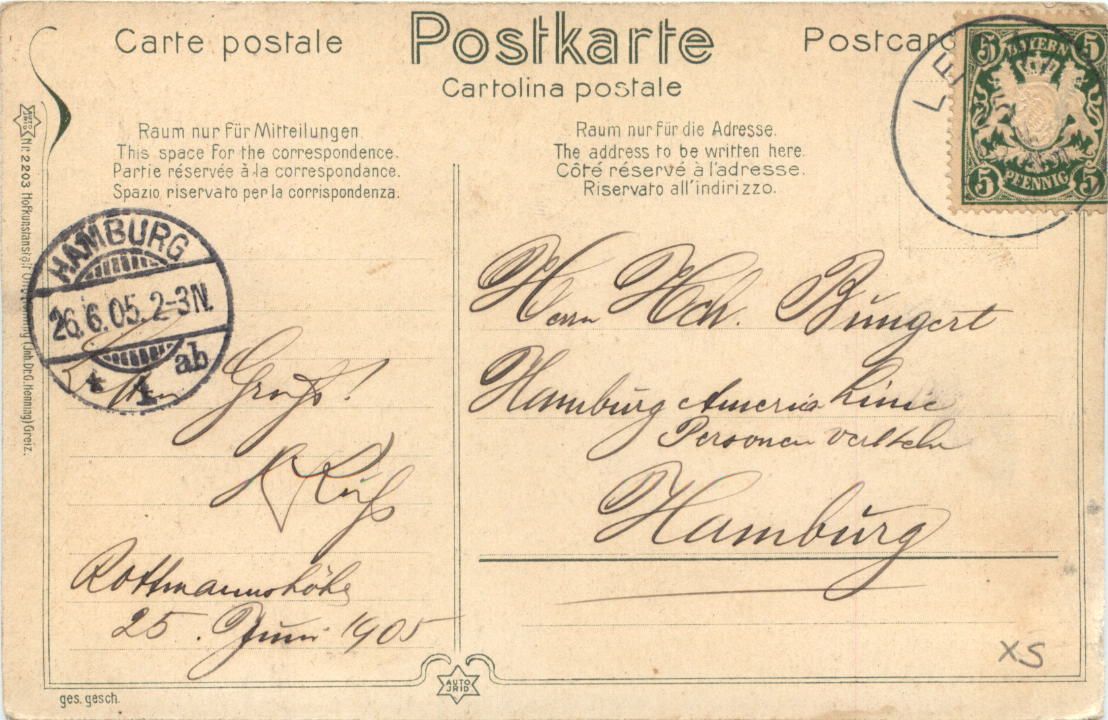 Carte postale
Postkarte
Postcard
Cartolina postale
Raum nur für Mitteilungen.
This space for the correspondence.
Partie réservée à la correspondance.
Spazio riservato per la corrispondenza.
Raum nur für die Adresse.
The address to be written here.
Côté réservé à l'adresse.
Riservato all'indirizzo.
5 BAYERN 5
5 PFENNIG 5
LE
Nr. 2203 Hofkunstanstalt Henning (Jnh. Dr. G. Henning) Greiz.
HAMBURG
26.6.05. 2-3N.
* 1 ab
Gruß!
Herrn Hch. Bungert
Hamburg Amerika Linie
Personen verkehr
Hamburg
Rottmannshöhe
25. Juni 1905
XS
AUTO
JRID
ges. gesch.